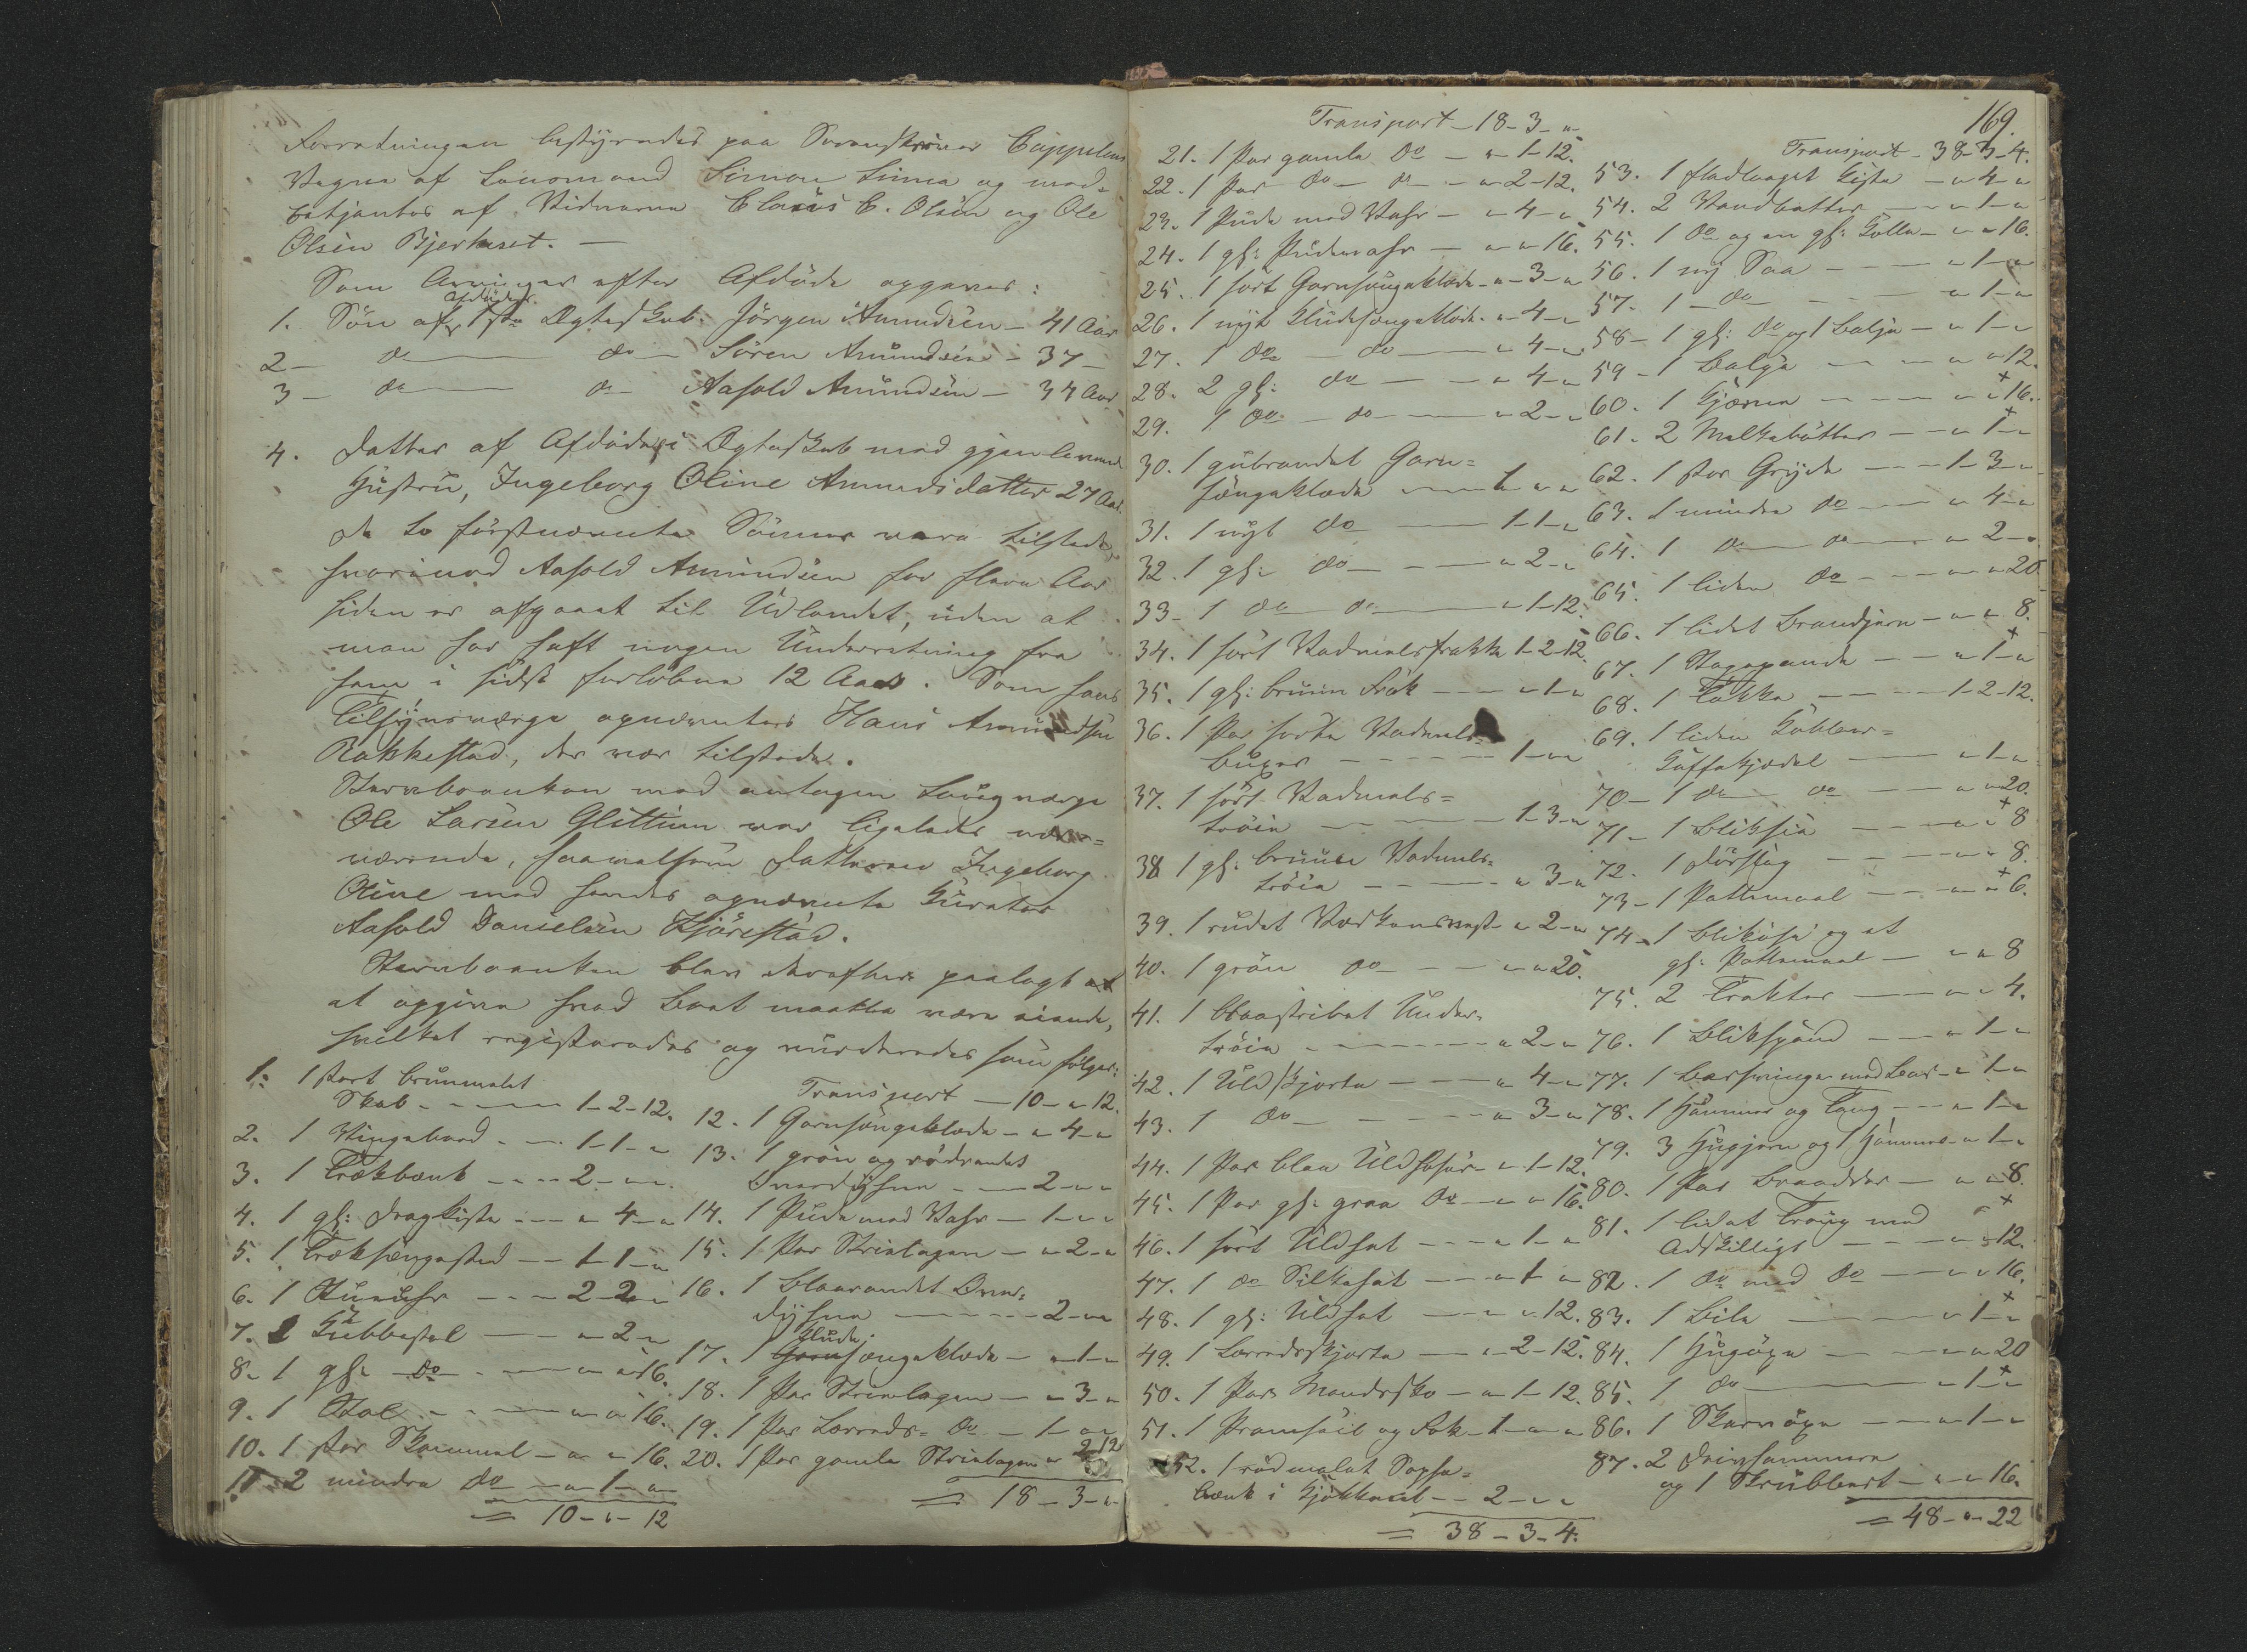 Forretningen bestyredes paa Sorenskriver Cappelens
Vegne af Lensmand Simon Linna og med-
betjentes af Vidnerne Claus C. Olsen og Ole
Olsen Bjerkeset. —
Som Arvinger efter Afdøde opgaves:
1. Søn af Afdødes 1ste Ægteskab: Jørgen Amundsen - 41 Aar
2 — do — do — Søren Amundsen - 37 -
3 — do — do Aasold Amundsen - 34 Aar
4. Datter af Afdødes Ægteskab med gjenlevende
Hustru, Ingeborg Oline Amundsdatter 27 Aar.
De to førstnævnte Sønner vare tilstede,
hvorimod Aasold Amundsen for flere Aar
siden er afgaaet til Udlandet, uden at
man har haft nogen Underretning fra
ham i sidst forløbne 12 Aar. Som hans
Tilsynsværge opnævntes Hans Amundsen
Rakkestad, der var tilstede.
Stervboenken med antagen Laugværge
Ole Larsen Glittum var ligeledes nær-
værende, saavelsom Datteren Ingeborg
Oline med hendes opnævnte Kurator
Aasold Danielsen Kjørestad.
Stervboenken blev derefter paalagt at
at opgive hvad Boet maatte være eiende,
hvilket registreredes og vurderedes som følger:
1. 1 stort brunmalet
Skab - - 1-2-12.
2. 1 Vingebord - - 1-1-"
3. 1 Trækbænk - - - 2-"-"
4. 1 gl: Dragkiste - - - " 4-"
5. 1 Træksengested - - 1-1-"
6. 1 Stueuhr - - - 2-2-"
7. 2 Kubbestol — - " 2-"
8. 1 gl: do - - " " 16.
9. 1 Stol - - - " " 16.
10. 1 stor Skammel - " - " 16.
11. 2 mindre do - " 1-"
= 10-"-12
Transport — 10-"-12.
12. 1 Garnsengeklæde - " 4-"
13. 1 grøn og rødrandet
Overdyhne - — 2-"-"
14. 1 Pude med Vahr - 1-"-"
15. 1 Par Strielagen - " 2-"
16. 1 blaarandet Over-
dyhne - - - 2-"-"
17. 1 Garn Kludesengeklæde - " 1-"
18. 1 Par Strielagen - " 3-"
19. 1 Par Lerreds- do - 1-"-"
20. 1 Par gamle Strielagen " 2 12
= 18-3-"
Transport - 18-3-"
21. 1 Par gamle do - " 1-12.
22. 1 Par do - do - " 2-12.
23. 1 Pude med Vahr - " 4-"
24. 1 gl: Pudevahr - " " 16.
25. 1 sort Garnsengeklæde - " 3-"
26. 1 nyt Kludesengeklæde - " 4-"
27. 1 do - do - " 4-"
28. 2 gl: do - - " 4-"
29. 1 do - do - " 2-"
30. 1 gulrandet Garn-
sengeklæde - 1 " "
31. 1 nyt do - 1-1-"
32. 1 gl: do - - " 2-"
33 - 1 do do - " 1-12.
34. 1 sort Vadmelsfrakke 1-2-12.
35. 1 gl: bruun Frak - - - " 1-"
36. 1 Par sorte Vadmels-
buxer - - - - 1-"-"
37. 1 sort Vadmels-
trøie - - 1-3-"
38 1 gl: bruun Vadmels-
trøie - - - " 3-"
39. 1 rudet Værkensvest - " 2-"
40. 1 grøn do - - " " 20.
41. 1 blaastribet Under-
trøie - - - - " 2-"
42. 1 Uldskjorte - - - " 4-"
43. 1 do - - - " 3-"
44. 1 Par blaa Uldhoser - " 1-12.
45. 1 Par gl: graa do - " " 16.
46. 1 sort Uldhat - - - " 1-"
47. 1 do Silkehat - - - " 1-"
48. 1 gl: Uldhat - - " " 12.
49. 1 Lerredsskjorte - - " 2-12.
50. 1 Par Mandssko - " 1-12.
51. 1 Pramseil og Fok - 1-"-"
52. 1 rødmalet
bænk i Kjøkkenet - - 2-"-"
= 38-3-4.
169.
Transport - 38-3-4.
53. 1 fladlaaget Kiste - " 4-"
54. 2 Vandbøtter - - " 1-"
55. 1 do og en gl: Kolle - " " 16.
56. 1 ny Saa - - - " 1-"
57. 1 - do - - - " 1-"
58 - 1 gl: do og 1 Balje - " 1-"
59 - 1 Balje - - " " 12.
60. 1 Kjærne - - - " " 16.
61. 2 Melkebøtter - - " 1-"
62. 1 stor Gryde - - - 1-3-"
63. 1 mindre do - - " 4-"
64. 1 do do - - " 2-"
65. 1 liden do - - - " " 20
66. 1 lidet Brandjern - " " 8.
67. 1 Stegepande - - " 1-"
68. 1 Takke - - - - 1-2-12.
69. 1 liden Kobber-
Kaffekjedel - - " 1-"
70 - 1 do do - - " " 20.
71 - 1 Bliksie - - " " 8
72. 1 Dørslag - - - - " " 8.
73 - 1 Pottemaal - - - " " 6.
74 - 1 Blikøse og et
gl: Pottemaal - " " 8
75. 2 Trakter - - " " 4.
76. 1 Blikspand - - " 1-"
77. 1 med - " 1-"
78. 1 Hammer og Tang - - " 1-"
79. 3 Hugjern og 1 Hammer - " 1-"
80. 1 Par - " " 8.
81. 1 lidet Traug med
Adskilligt - - - " " 12.
82. 1 do med do - - " " 16.
83. 1 Bile - - - " 1-"
84. 1 Hugøxe - - - " " 20
85. 1 do - - " 1-"
86. 1 Skarøxe - - " 1-"
87. 2
og 1 - " " 16.
= 48-"-22